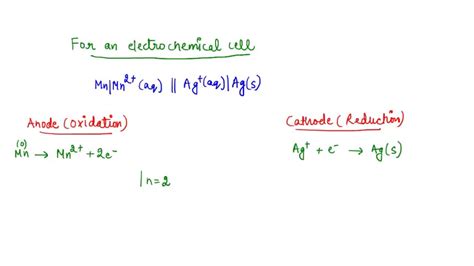 For an electrochemical cell
Mn|Mn²⁺(aq) || Ag⁺(aq)|Ag(s)
Anode (Oxidation)
(0)
Mn → Mn²⁺ + 2e⁻
Cathode (Reduction)
Ag⁺ + e⁻ → Ag(s)
| n=2